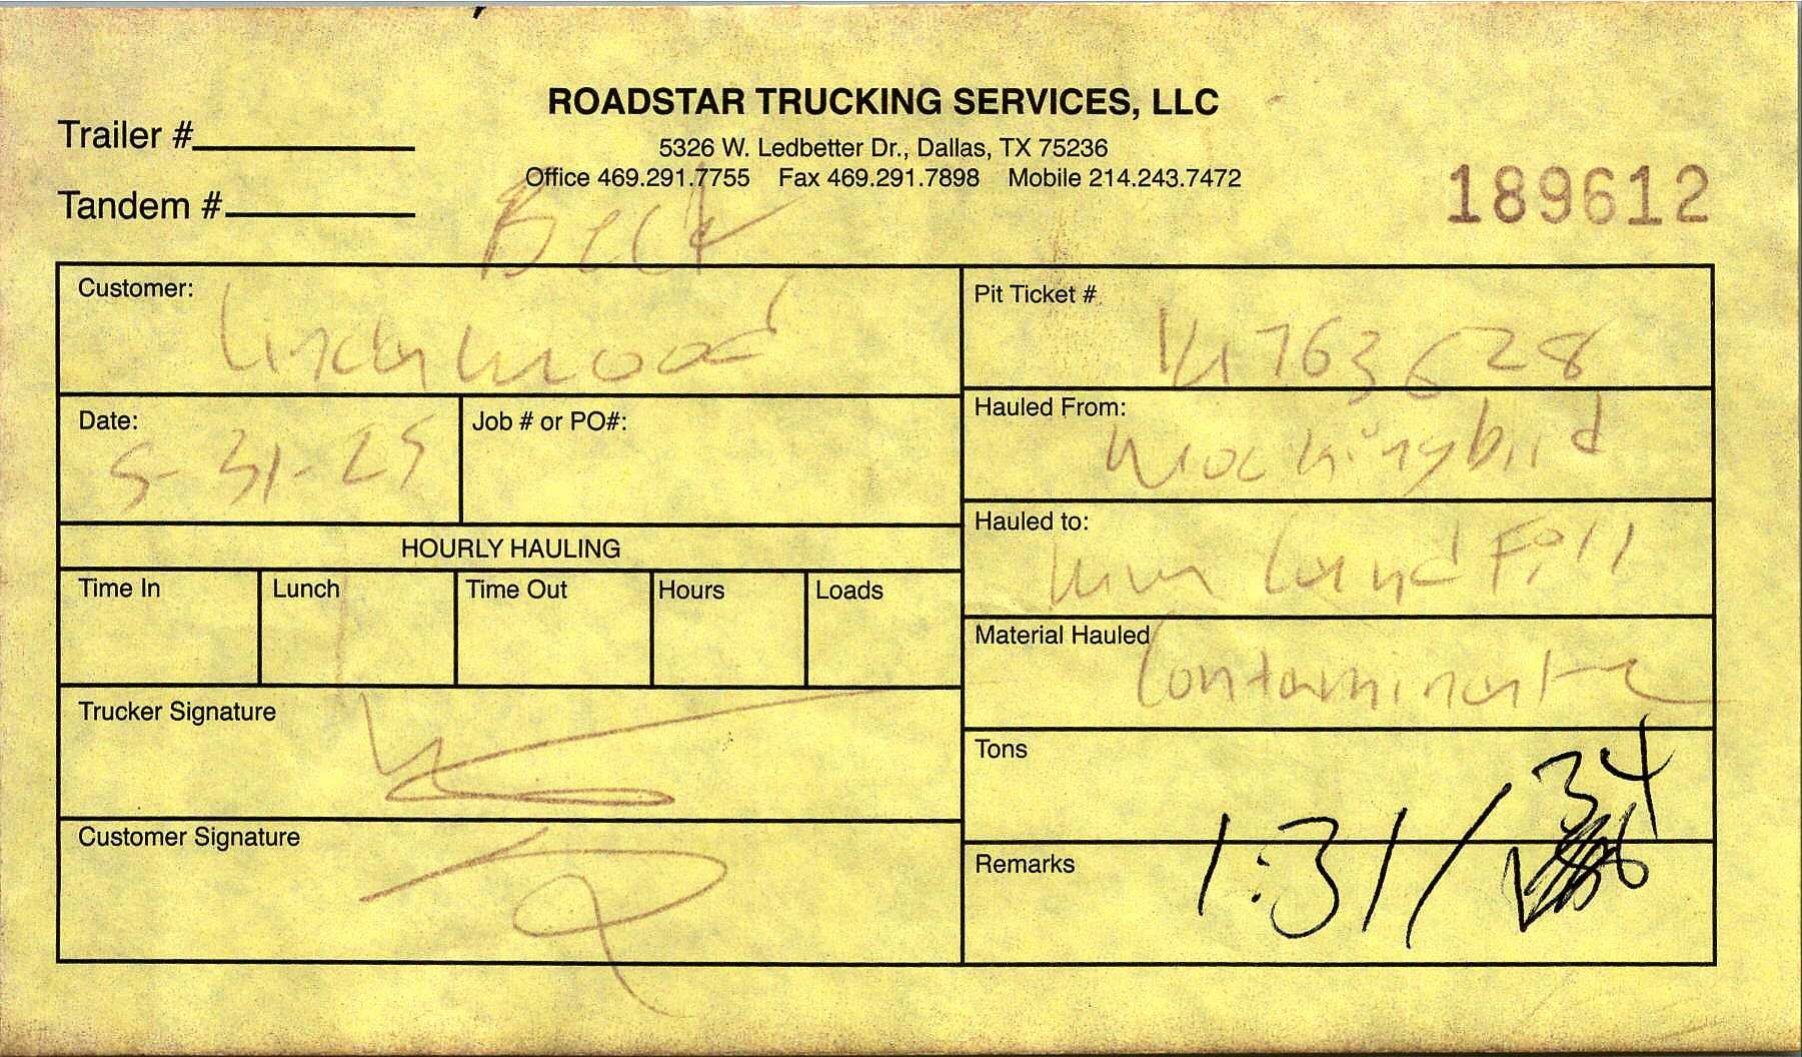 ROADSTAR TRUCKING SERVICES, LLC
5326 W. Ledbetter Dr., Dallas, TX 75236
Office 469.291.7755 Fax 469.291.7898 Mobile 214.243.7472
Trailer #
Tandem #
189612
Beck
Customer:
Pit Ticket #
763628
Date: 5-31-25
Job # or PO#:
Hauled From: Mockingbird
Hauled to: Land Fill
HOURLY HAULING
Time In Lunch Time Out Hours Loads
Material Hauled Contaminate
Trucker Signature
Tons
34
Customer Signature
Remarks
1:31/